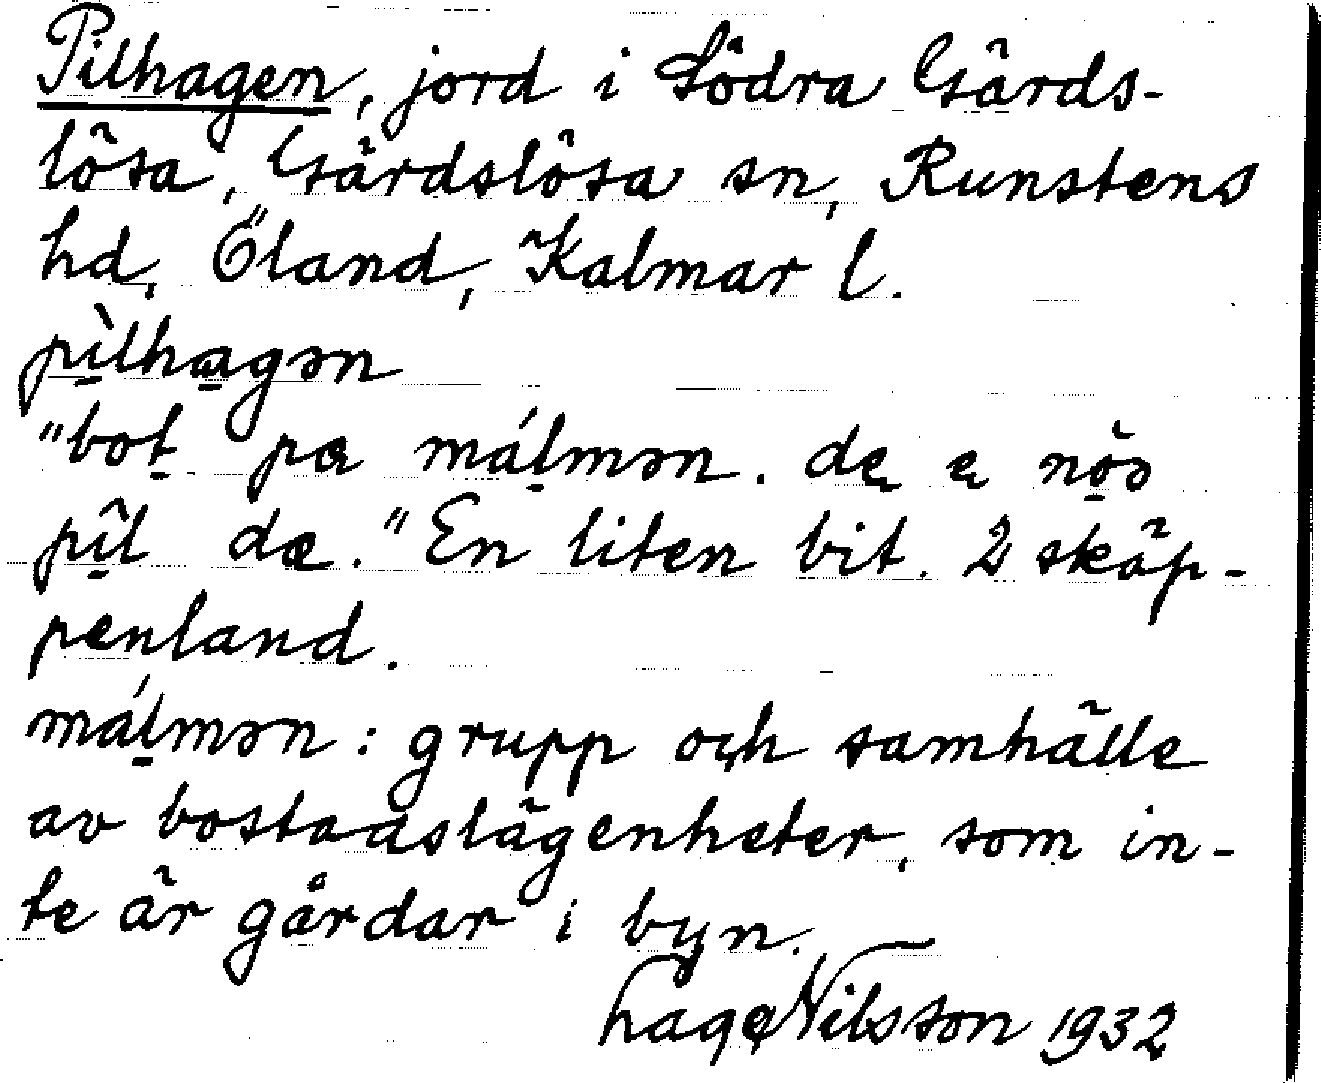 Pilhagen, jord i Södra Gärds-
lösa, Gärdslösa sn, Runstens
hd, Öland, Kalmar l.
pìlhagən
"bot̠ pa mál̠mən. dę ę nǫ̀ə
pîl dæ." En liten bit. 2 skäp-
penland.
mál̠mən: grupp och samhälle
av bostadslägenheter, som in-
te är gårdar i byn.
Nilsson 1932